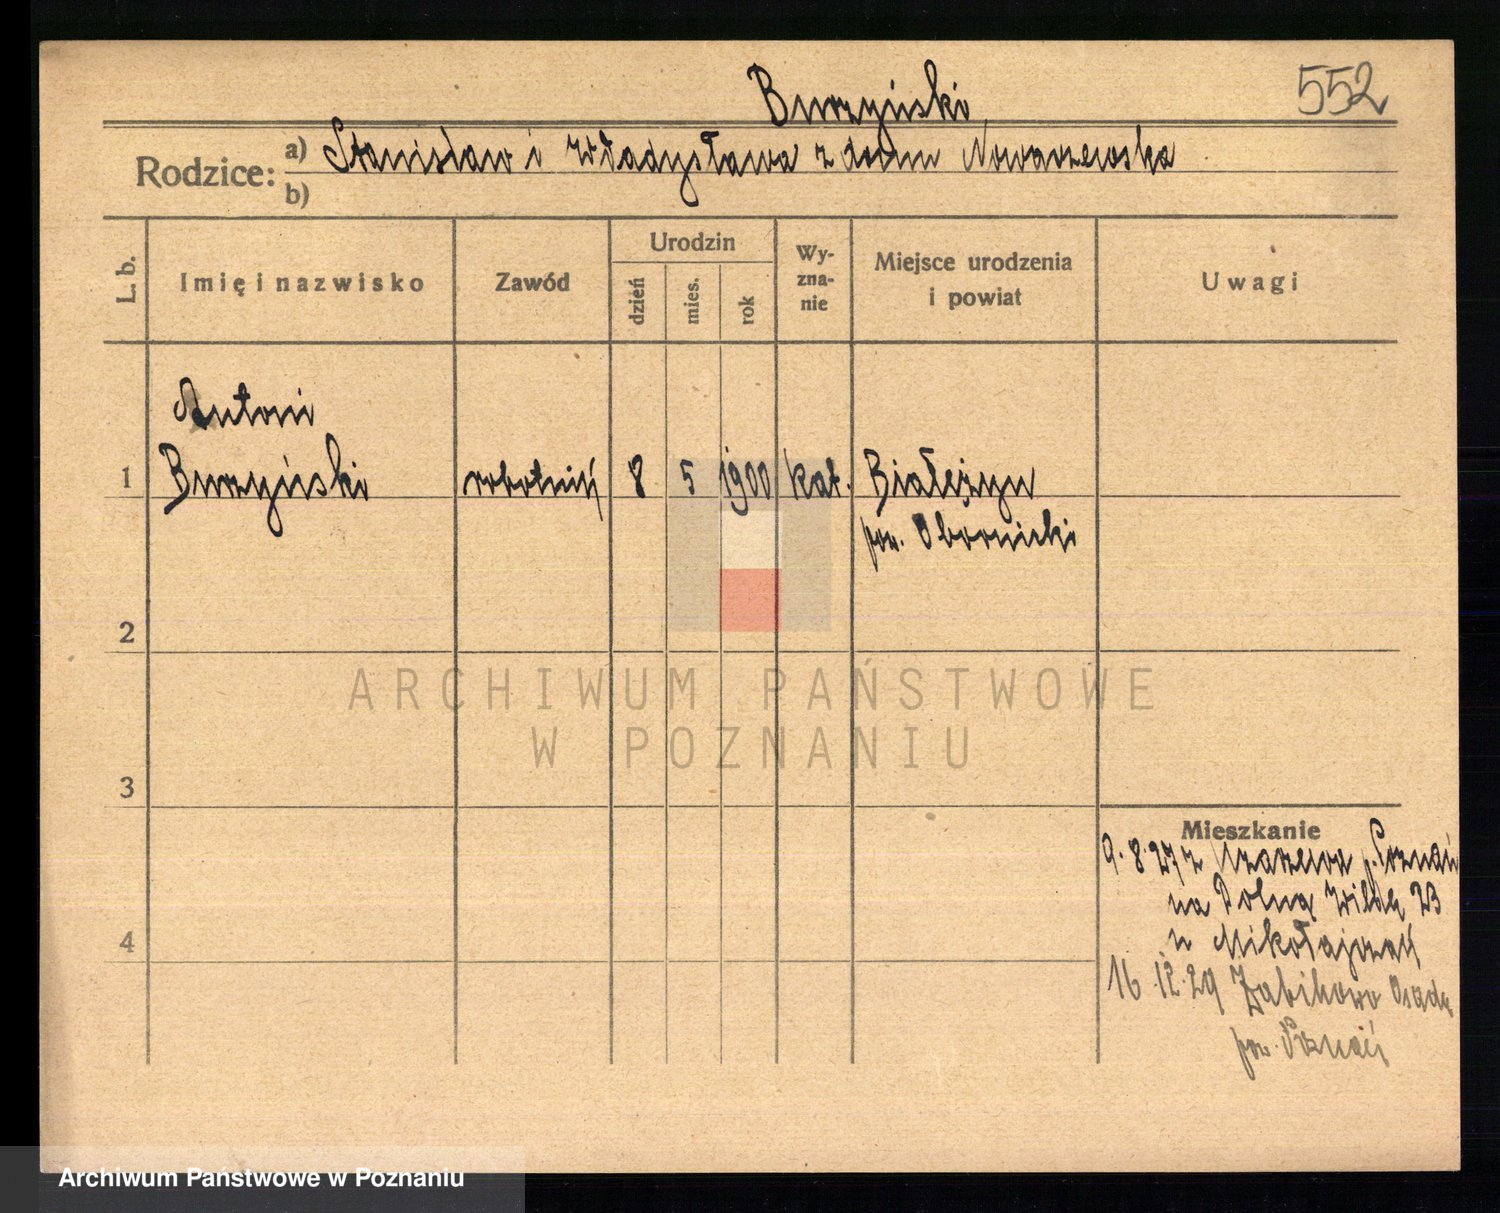 552
Burzyński
Rodzice: a) Stanisław i Władysława z domu Nowaczewska
b)
L. b.
Imię i nazwisko
Zawód
Urodzin
dzień
mies.
rok
Wy-
zna-
nie
Miejsce urodzenia
i powiat
Uwagi
Antoni
1 Burzyński robotnik 8 5 1900 kat. Białężyn
pow. Obornicki
2
ARCHIWUM PAŃSTWOWE
W POZNANIU
3
Mieszkanie
9.8.27 z p. Poznań
na Dolną Wildę 23
u Mikołajczak
4
16.12.29 Żabikowo
pow. Poznań
Archiwum Państwowe w Poznaniu